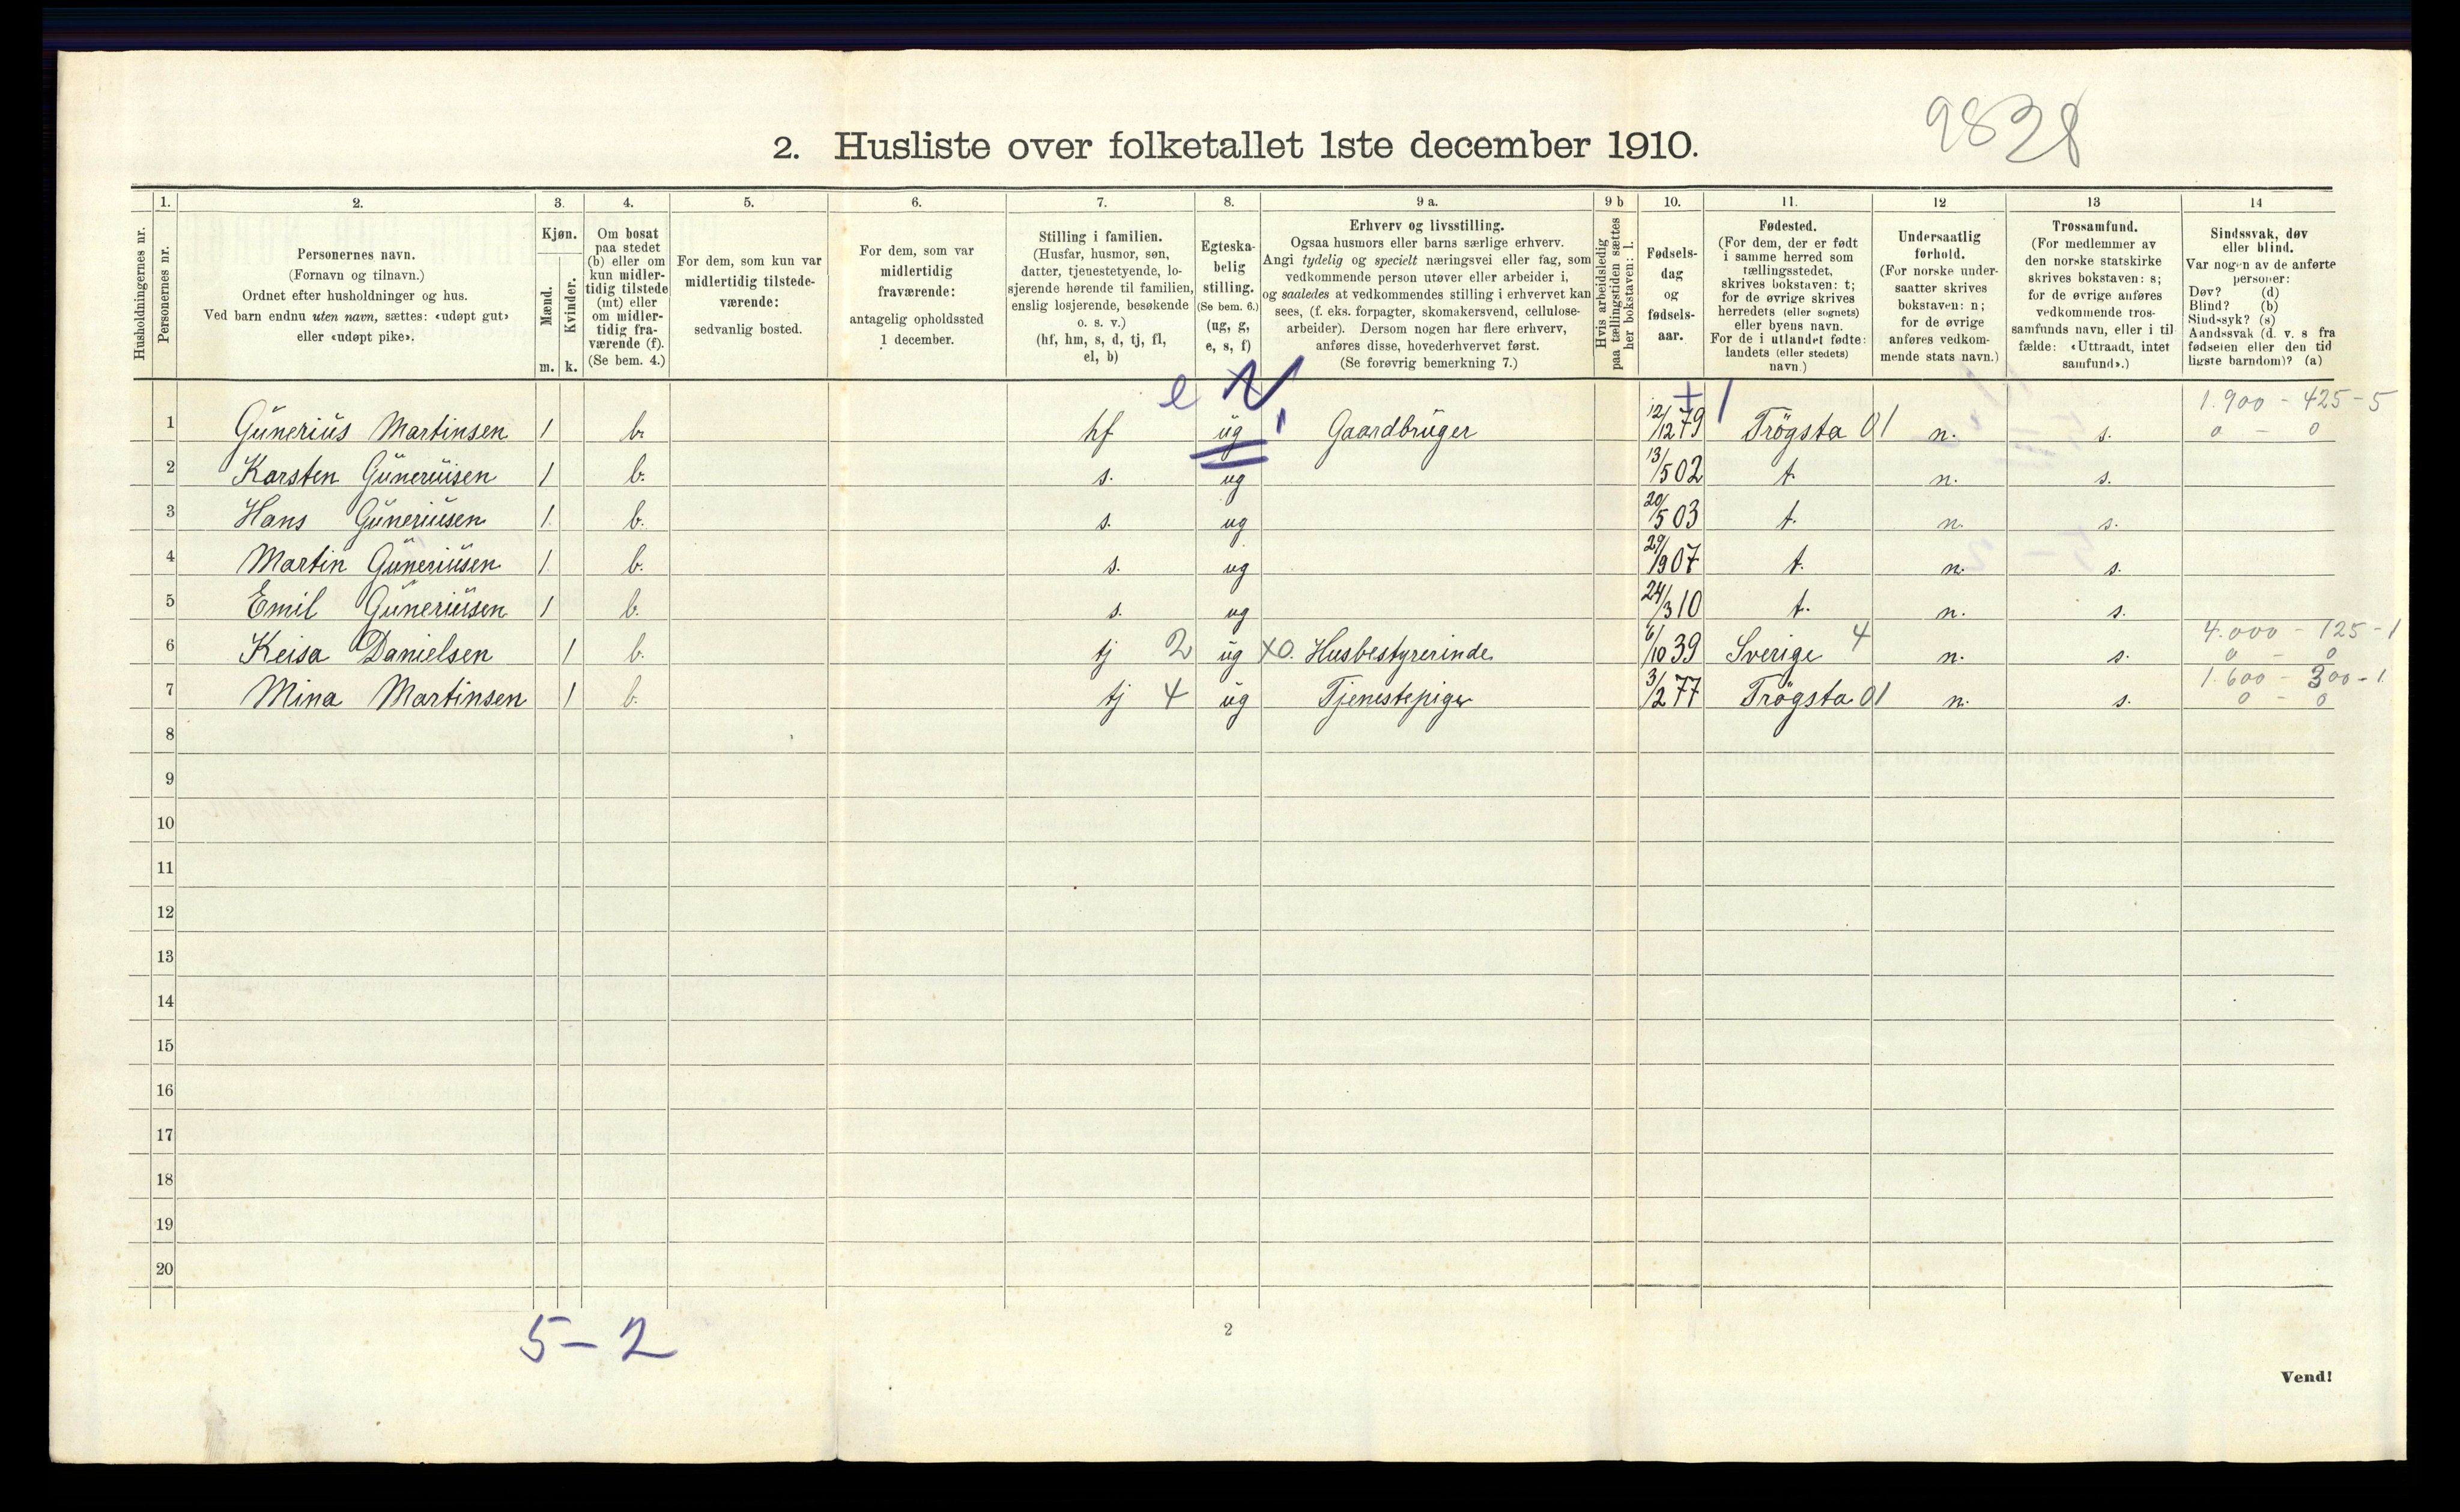 9828
2. Husliste over folketallet 1ste december 1910.
Husholdningernes nr.
1. 2. 3. 4. 5. 6. 7. 8. 9 a. 9 b 10. 11. 12 13 14
Personernes nr.
Personernes navn.
(Fornavn og tilnavn.)
Ordnet efter husholdninger og hus.
Ved barn endnu uten navn, sættes: «udøpt gut»
eller «udøpt pike».
Kjøn.
Mænd.
Kvinder.
m. k.
Om bosat
paa stedet
(b) eller om
kun midler-
tidig tilstede
(mt) eller
om midler-
tidig fra-
værende (f).
(Se bem. 4.)
For dem, som kun var
midlertidig tilstede-
værende:
sedvanlig bosted.
For dem, som var
midlertidig
fraværende:
antagelig opholdssted
1 december.
Stilling i familien.
(Husfar, husmor, søn,
datter, tjenestetyende, lo-
sjerende hørende til familien,
enslig losjerende, besøkende
o. s. v.)
(hf, hm, s, d, tj, fl,
el, b)
Egteska-
belig
stilling.
(Se bem. 6.)
(ug, g,
e, s, f)
Erhverv og livsstilling.
Ogsaa husmors eller barns særlige erhverv.
Angi tydelig og specielt næringsvei eller fag, som
vedkommende person utøver eller arbeider i,
og saaledes at vedkommendes stilling i erhvervet kan
sees, (f. eks. forpagter, skomakersvend, cellulose-
arbeider). Dersom nogen har flere erhverv,
anføres disse, hovederhvervet først.
(Se forøvrig bemerkning 7.)
Hvis arbeidsledig
paa tællingstiden sættes
her bokstaven: l.
Fødsels-
dag
og
fødsels-
aar.
Fødested.
(For dem, der er født
i samme herred som
tællingsstedet,
skrives bokstaven: t;
for de øvrige skrives
herredets (eller sognets)
eller byens navn.
For de i utlandet fødte:
landets (eller stedets)
navn.)
Undersaatlig
forhold.
(For norske under-
saatter skrives
bokstaven: n;
for de øvrige
anføres vedkom-
mende stats navn.)
Trossamfund.
(For medlemmer av
den norske statskirke
skrives bokstaven: s;
for de øvrige anføres
vedkommende tros-
samfunds navn, eller i til
fælde: «Uttraadt, intet
samfund».)
Sindssvak, døv
eller blind.
Var nogen av de anførte
personer:
Døv? (d)
Blind? (b)
Sindssyk? (s)
Aandssvak (d. v. s fra
fødselen eller den tid
ligste barndom)? (a)
e N + 1 1.900 - 425 - 5
1 Günerius Martinsen 1 b. hf ug Gaardbrüger 12/12 79 Trögsta 01 n. s. 0 - 0
2 Karsten Güneriüsen 1 b. s. ug 13/5 02 t. n. s.
3 Hans Güneriüsen 1. b. s. ug 20/5 03 t. n. s.
4 Martin Güneriüsen 1. b. s. ug 29/9 07 t. n. s.
5 Emil Güneriüsen 1 b. s. ug 24/3 10 t. n. s.
4.000 - 125 - 1
6 Keisa Danielsen 1 b. tj 2 ug XO. Husbestyrerinde 6/10 39 Sverige 4 n. s. 0 - 0
1.600 - 300 - 1
7 Mina Martinsen 1 b. tj 4 ug Tjenestepige 3/2 77 Trögsta 01 n. s. 0 - 0
8
9
10
11
12
13
14
15
16
17
18
19
20
5 - 2
2
Vend!